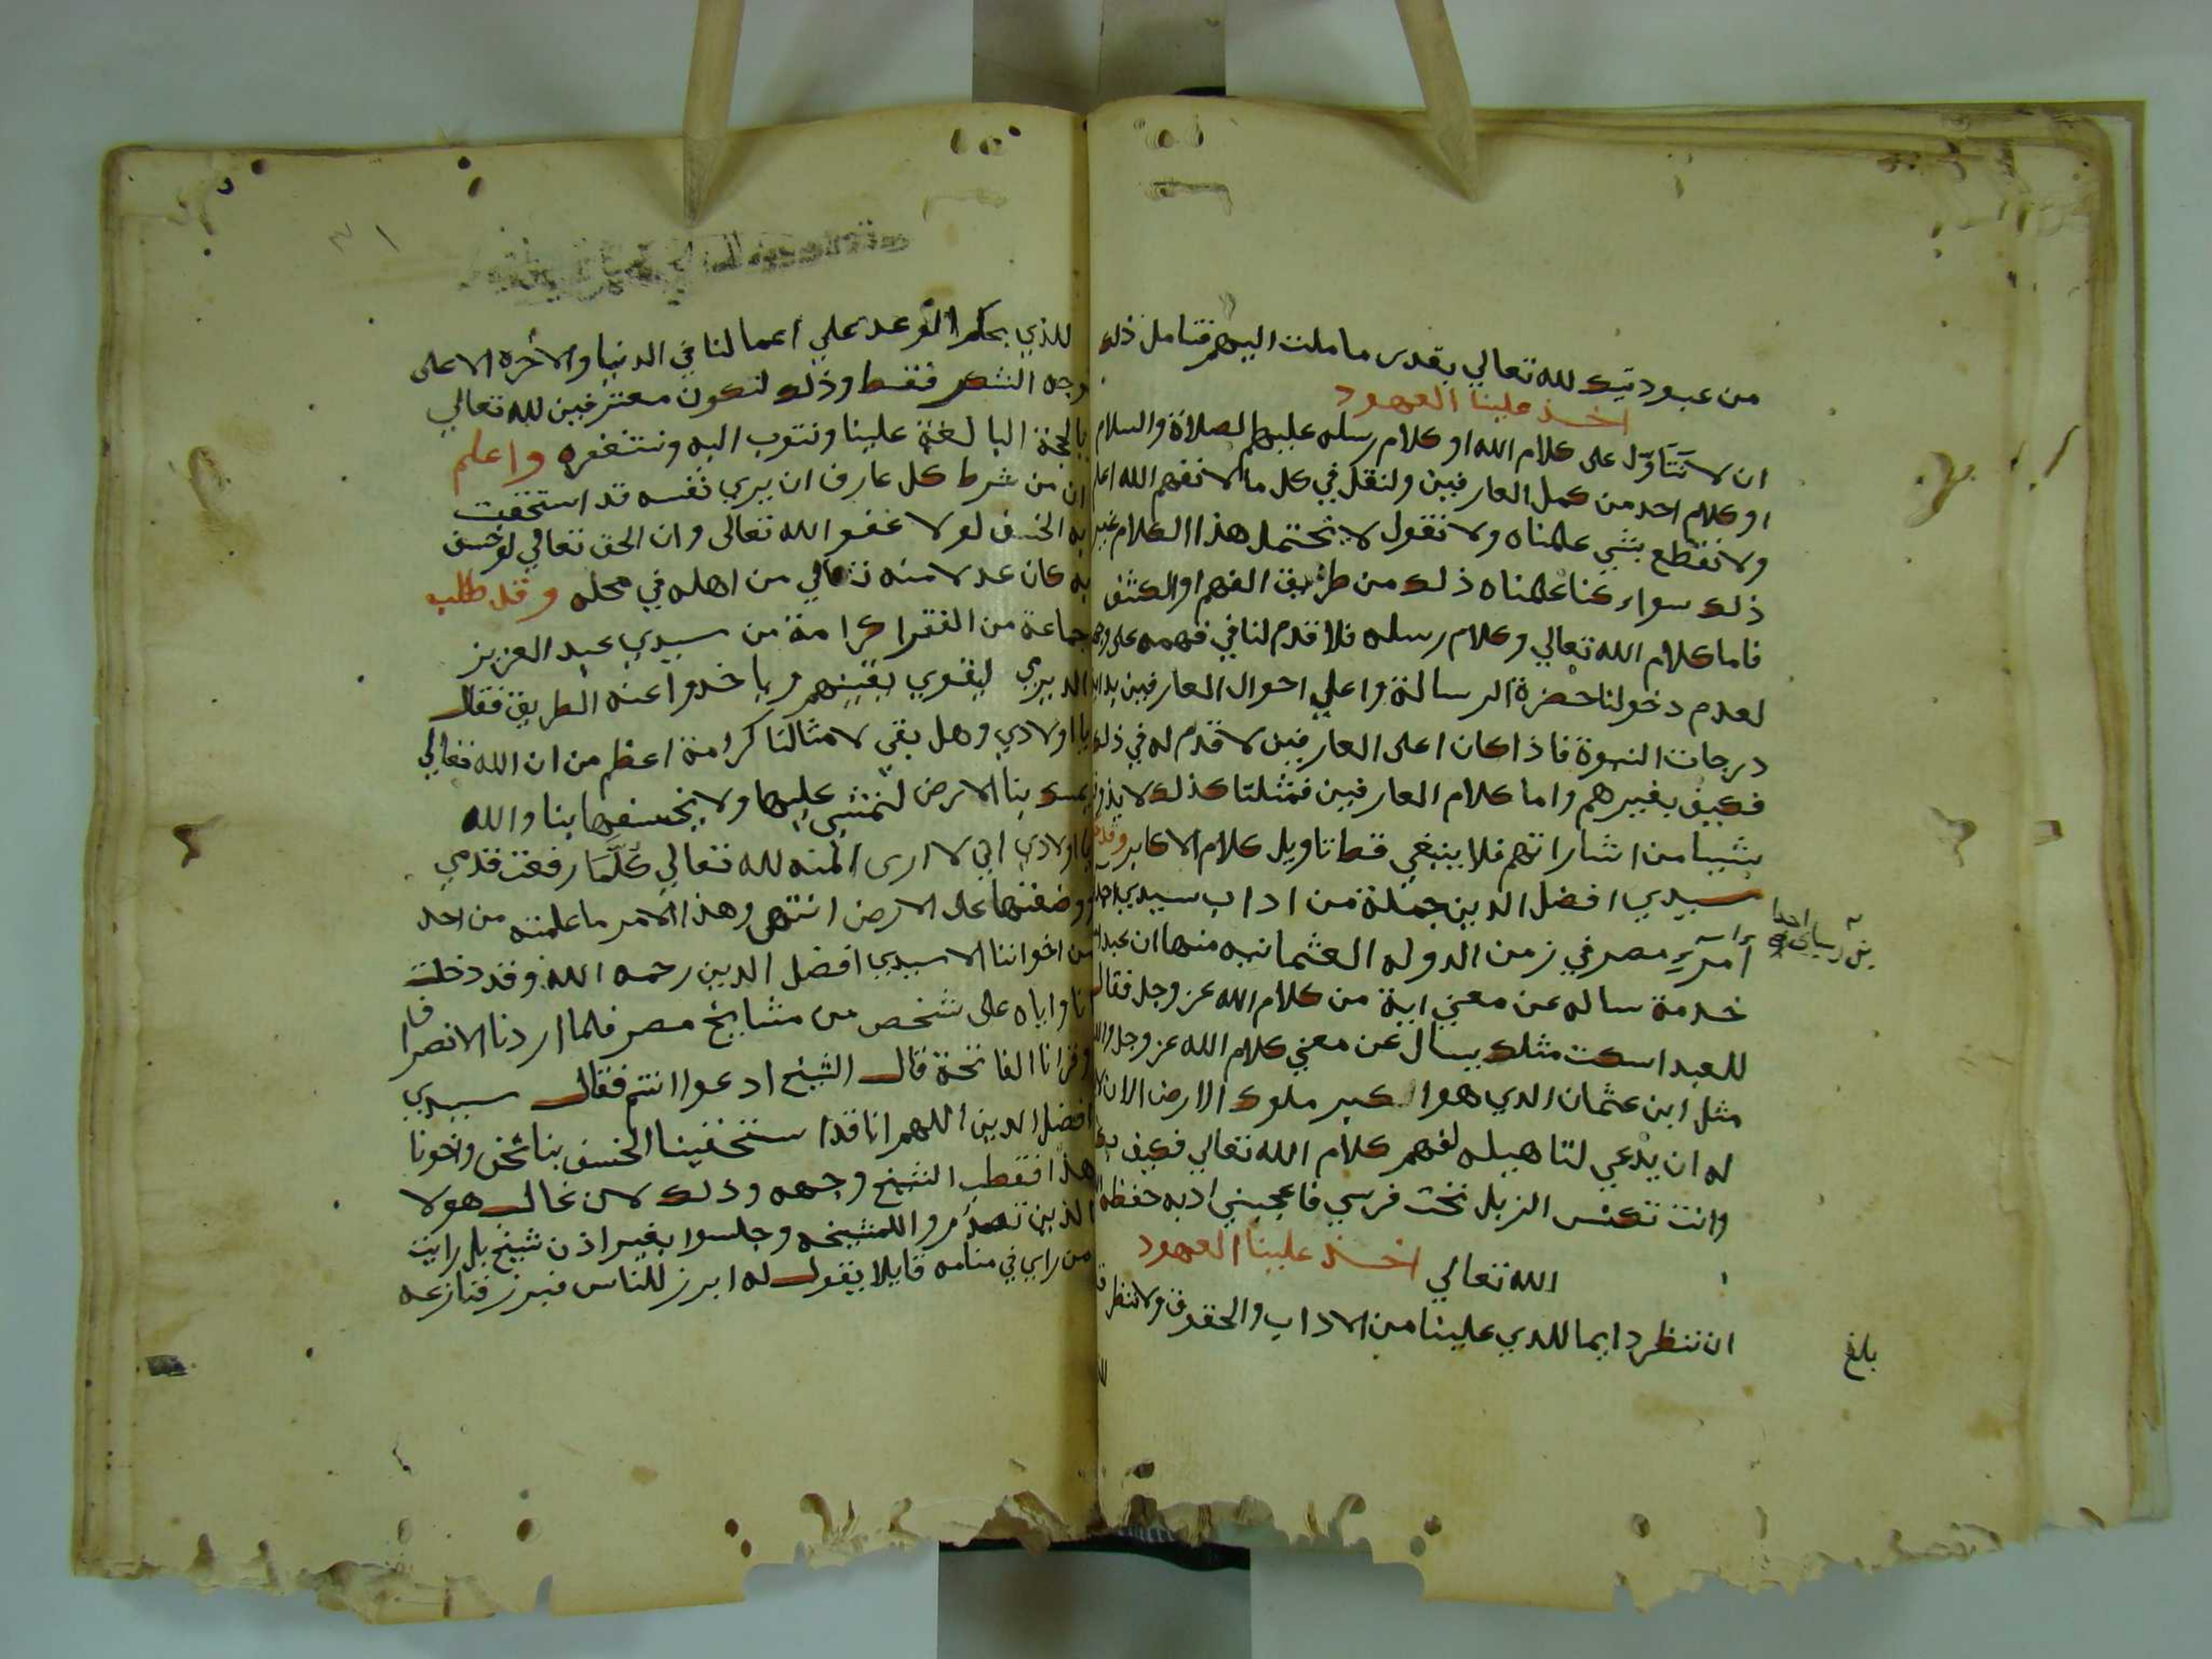 من عبوديتك لله تعالي بقدر ما ملت اليهم فتامل ذلك
اخذ علينا العهود
ان لا نتاول على كلام الله او كلام رسله عليهم الصلاة والسلام
او كلام احد من كمل العارفين ولنقل في كل ما لا نفهم الله اعلم
ولا نقطع بشي علمناه ولا نقول لا يحتمل هذا الكلام غير
ذلك سواء كنا علمناه ذلك من طريق الفهم او الكشف
فاما كلام الله تعالي وكلام رسله فلا قدم لنا في فهمه على
لعدم دخولنا حضرة الرسالة واعلي احوال العارفين
درجات النبوة فاذا كان اعلى العارفين لا قدم له في ذلك
فكيف بغيرهم واما كلام العارفين فمثلنا كذلك لا
شييا من اشاراتهم فلا ينبغي قط تاويل كلام الاكابر
سيدي افضل الدين جملة من اداب سيدي احمد
امراء مصر في زمن الدوله العثمانيه منها ان
خدمة ساله عن معني اية من كلام الله عز وجل فقال
للعبد اسكت مثلك يسال عن معني كلام الله عز وجل
مثل ابن عثمان الدي هو اكبر ملوك الارض الان
له ان يدعي لتاهيله لفهم كلام الله تعالي فكيف
وانت تكنس الزبل تحت فرسي فاعجبني ادبه حفظه
الله تعالي اخذ علينا العهود
ان ننظر دايما للدي علينا من الاداب والحقوق ولا ننظر
بلغ
للذي بحكم الوعد علي اعمالنا في الدنيا والاخره الا على
وجه الشكر فقط وذلك لنكون معترفين لله تعالي
بالحجة البالغة علينا ونتوب اليه ونستغفره واعلم
ان من شرط كل عارف ان يري نفسه قد استحقت
به الخسف لولا عفو الله تعالى وان الحق تعالي لو خسف
به كان عدلا منه تعالي من اهله في محله وقد طلب
جماعة من الفقرا كرامة من سيدي عبد العزيز
الديريني ليقوي يقينهم وياخدوا عنه الطريق فقال
يا اولادي وهل بقي لامثالنا كرامة اعظم من ان الله تعالي
يمسك بنا الارض لنمشي عليها ولا يخسفها بنا والله
يا اولادي اني لا ارى المنه لله تعالي كلما رفعت قدمي
ووضعتها على الارض انتهى وهذا الامر ما علمته من احد
من اخواننا الا سيدي افضل الدين رحمه الله وقد دخلت
انا واياه على شخص من مشايخ مصر فلما اردنا الانصراف
وقرانا الفاتحة قال الشيخ ادعوا انتم فقال سيدي
افضل الدين اللهم انا قد استحقينا الخسف بنا نحن واخونا
هذا فقطب الشيخ وجهه وذلك لان غالب هولا
الذين تصدروا للمشيخه وجلسوا بغير اذن شيخ بل رايت
من راي في منامه قايلا يقول له ابرز للناس فبرز فنازعه